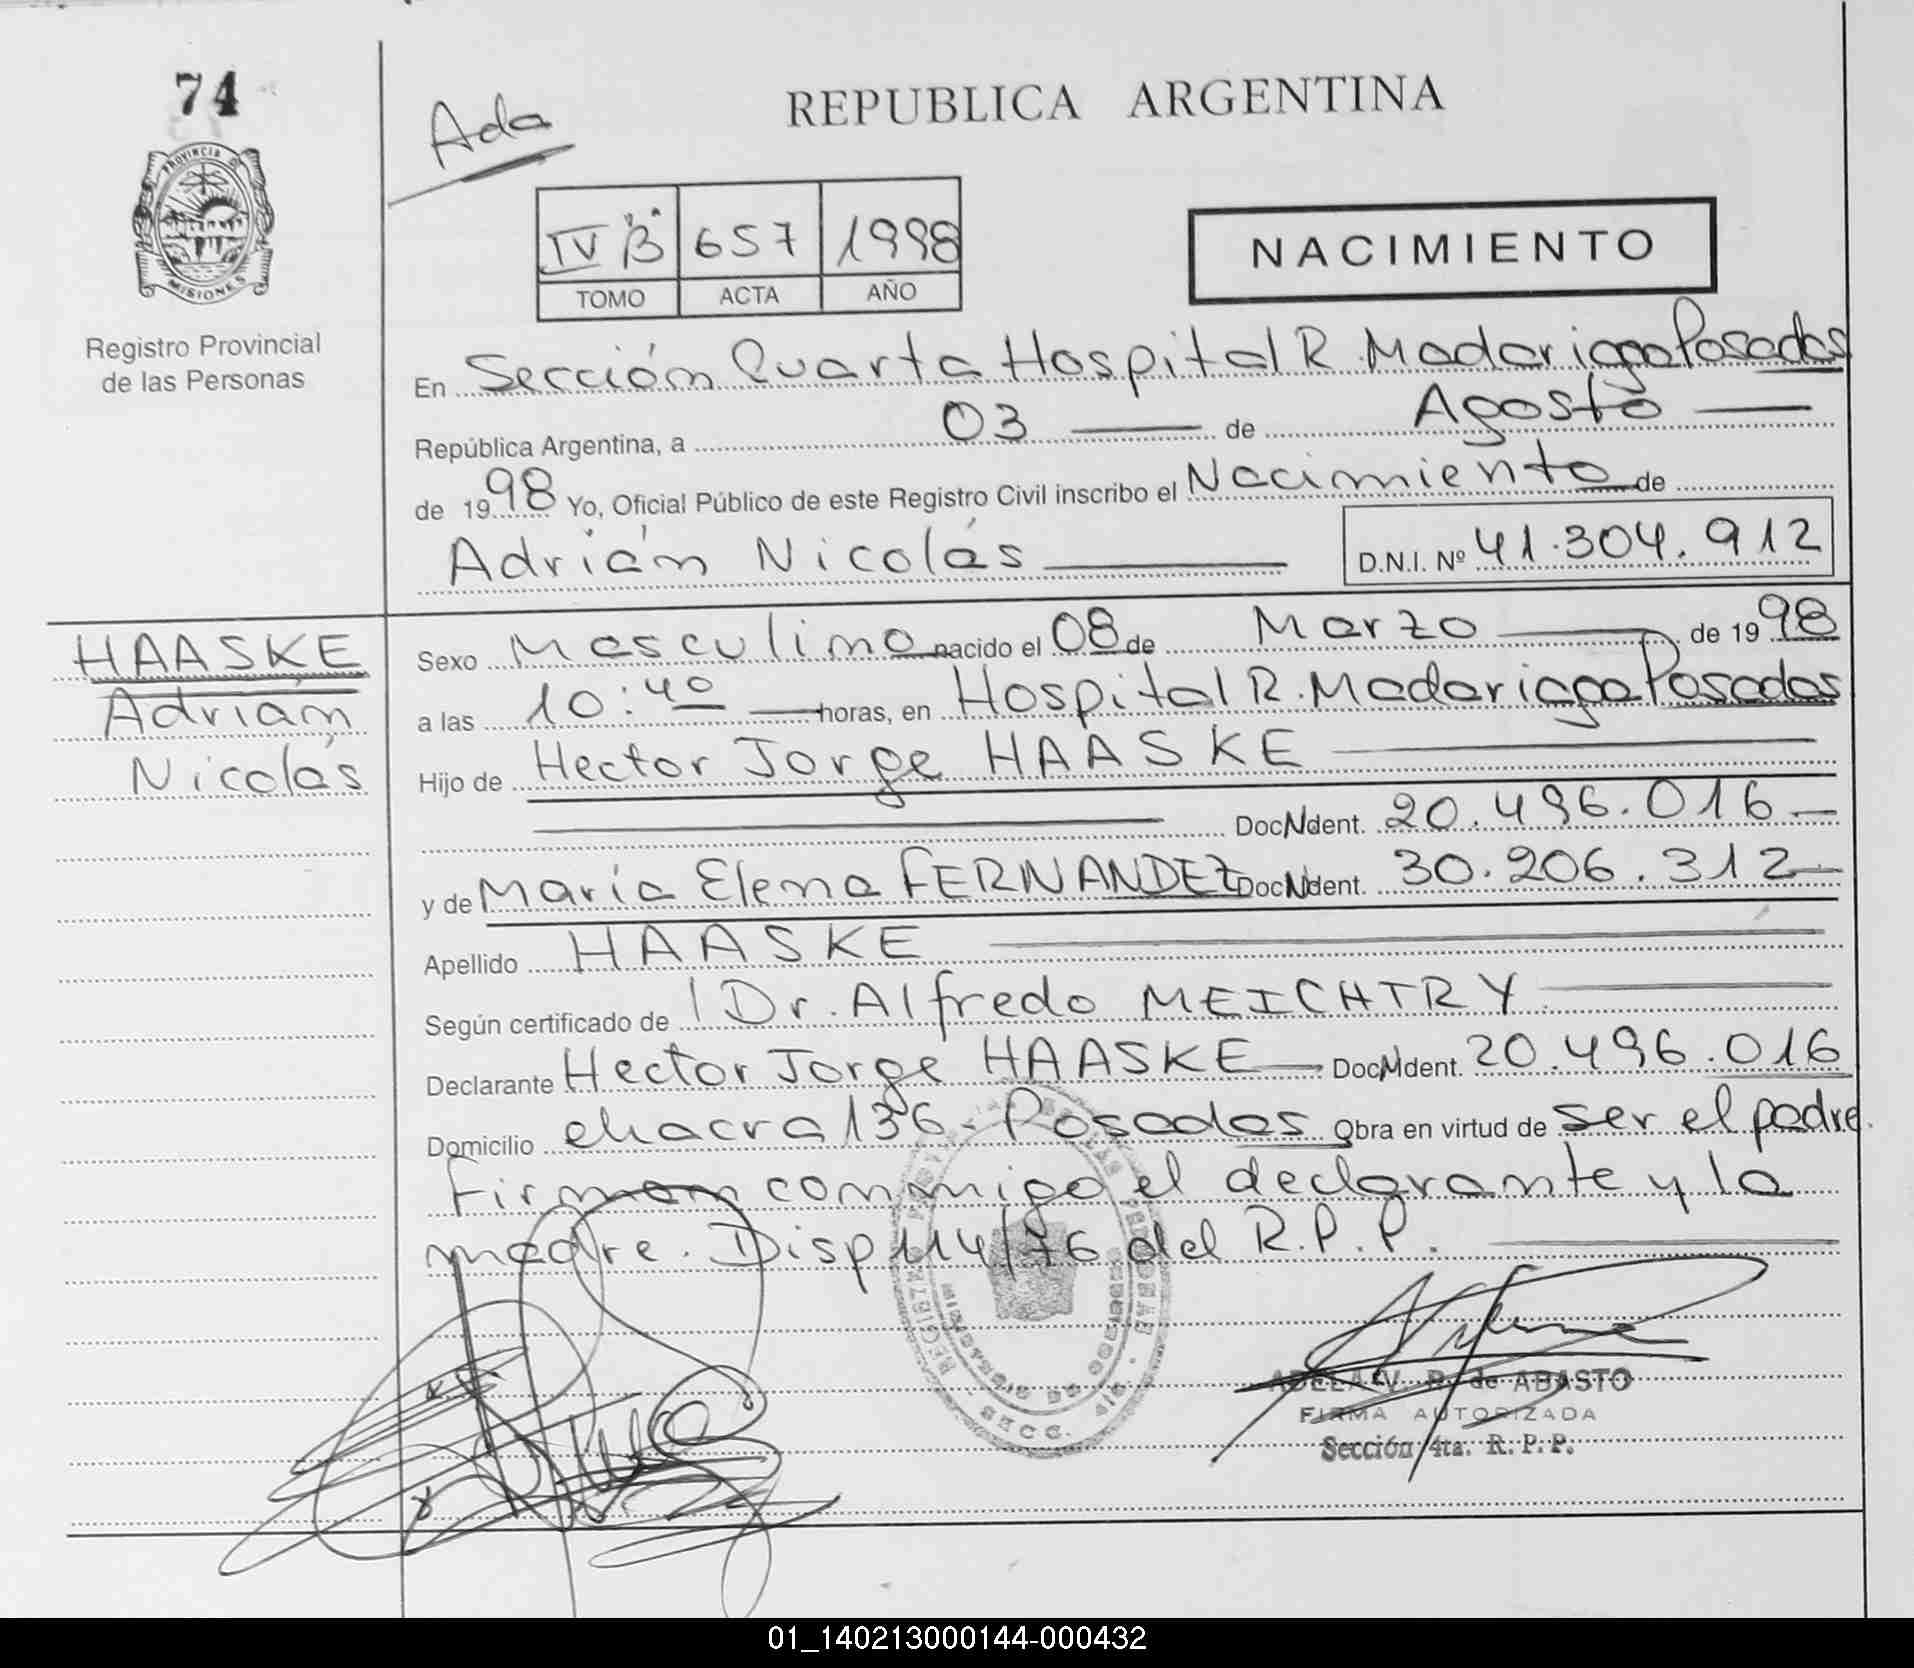 74
PROVINCIA DE
MISIONES
Registro Provincial
de las Personas
Ada
REPUBLICA ARGENTINA
IV "B" 657 1998
TOMO ACTA AÑO
NACIMIENTO
En Sección Cuarta Hospital R. Madariaga Posadas
República Argentina, a 03 de Agosto
de 1998 Yo, Oficial Público de este Registro Civil inscribo el Nacimiento de
Adrián Nicolás D.N.I. Nº 41.304.912
HAASKE
Adrián
Nicolás
Sexo Masculino nacido el 08 de Marzo de 1998
a las 10:40 horas, en Hospital R. Madariaga Posadas
Hijo de Hector Jorge HAASKE
Doc. Ident. 20.496.016
y de María Elena FERNANDEZ Doc. Ident. 30.206.312
Apellido HAASKE
Según certificado de Dr. Alfredo MEICHTRY
Declarante Hector Jorge HAASKE Doc. Ident. 20.496.016
Domicilio chacra 136 - Posadas Obra en virtud de ser el padre.
Firman conmigo el declarante y la
madre. Disp 114/76 del R.P.P.
ADELA V. R. de ABASTO
FIRMA AUTORIZADA
Sección 4ta. R. P. P.
01_140213000144-000432